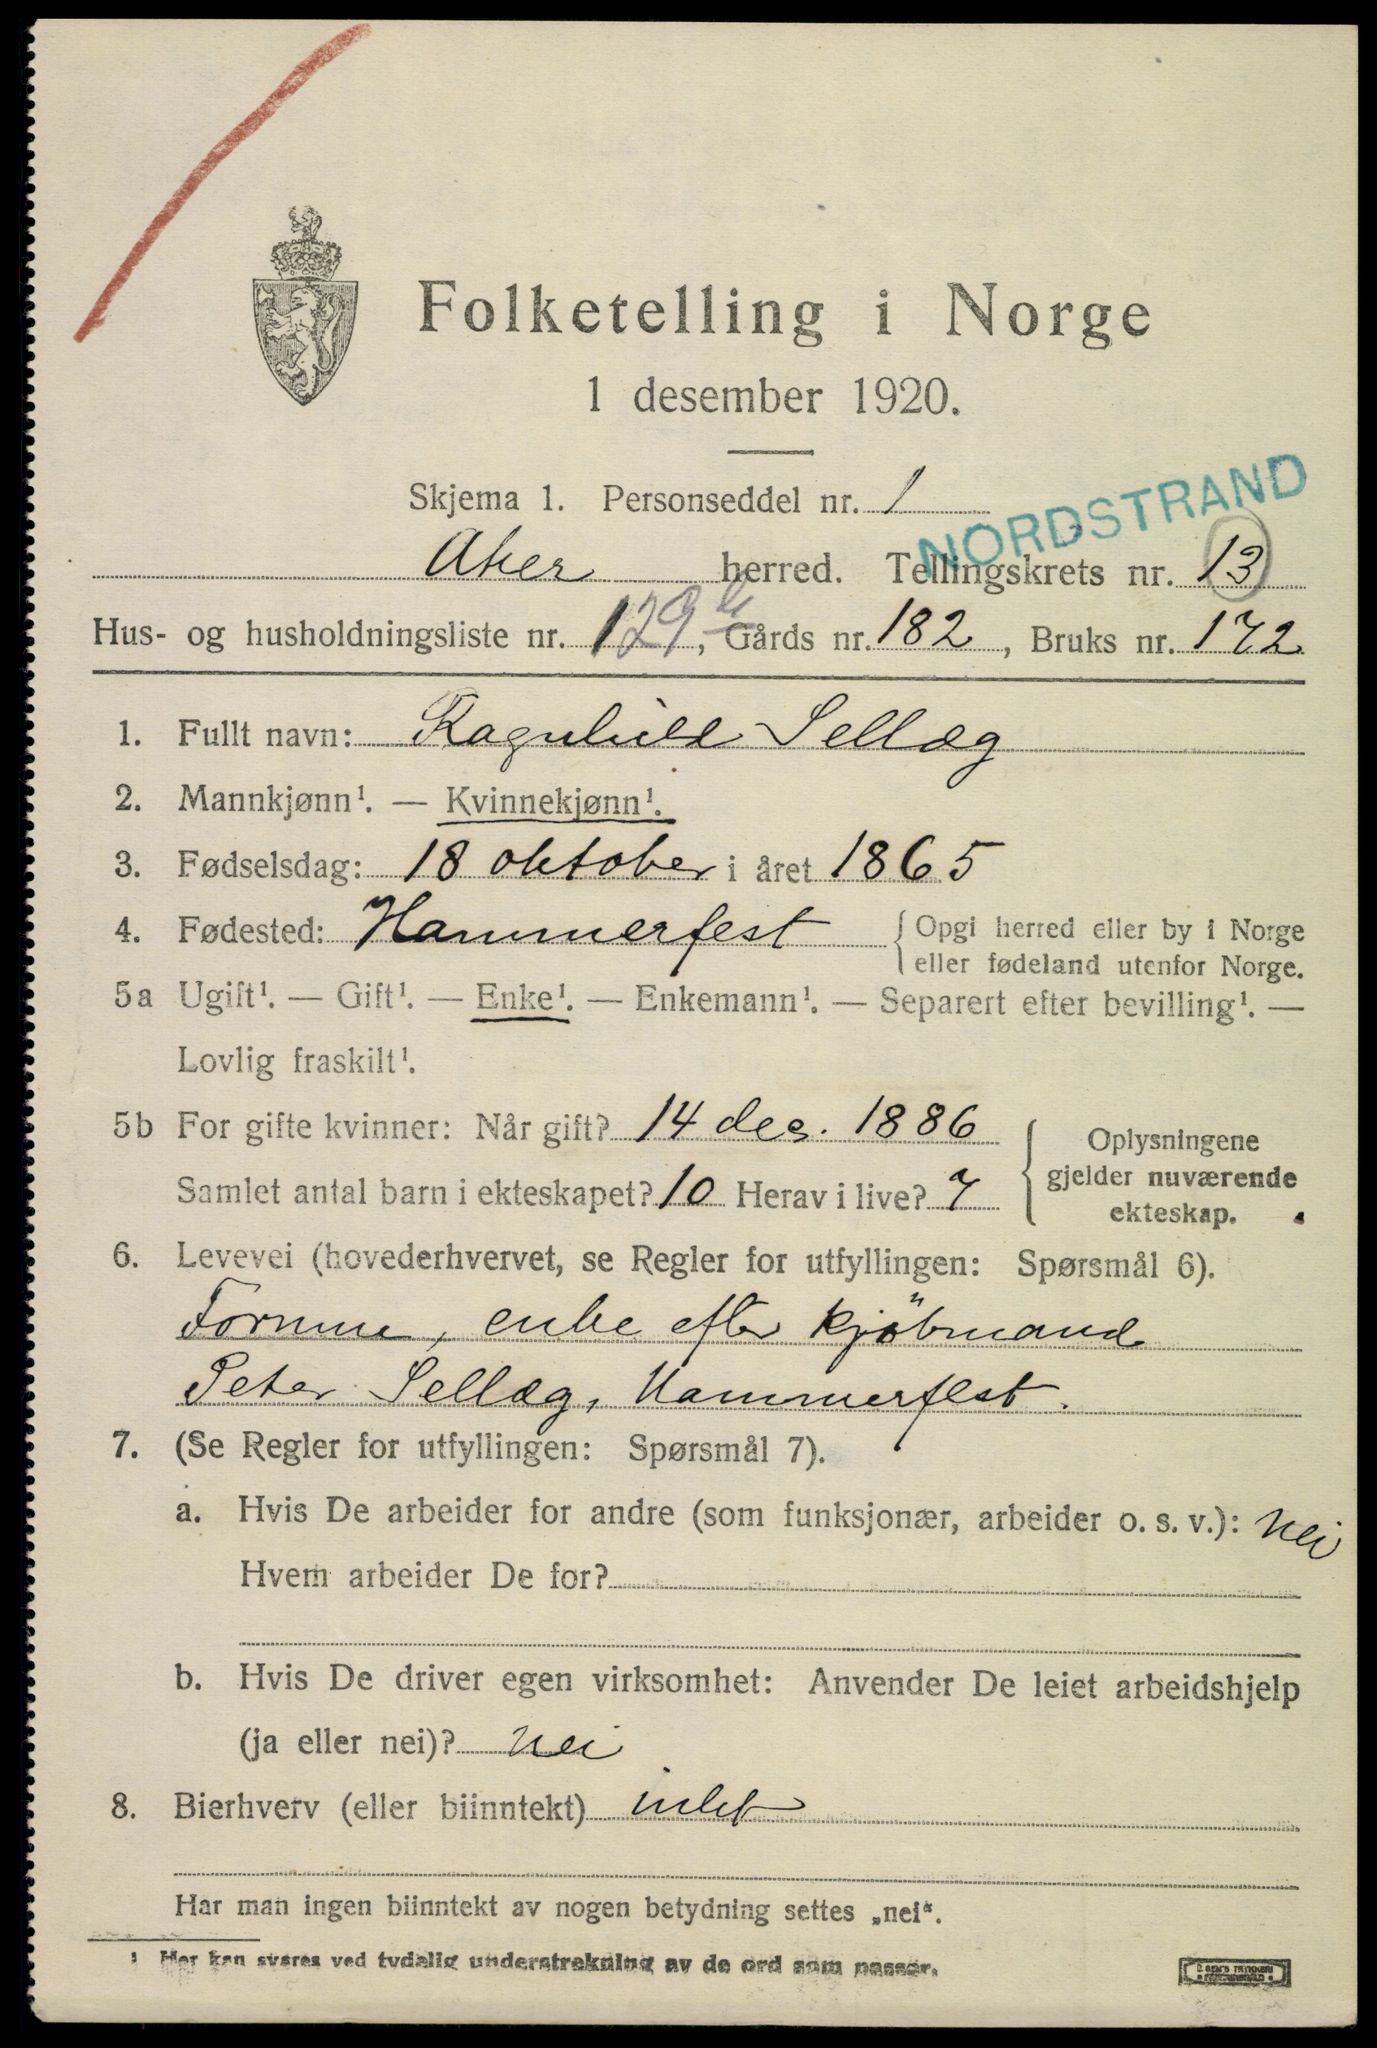 Folketelling i Norge
1 desember 1920.
NORDSTRAND
Skjema 1. Personseddel nr. 1
Aker herred. Tellingskrets nr. 13
Hus- og husholdningsliste nr. 129 b, Gårds nr. 182, Bruks nr. 172
1. Fullt navn: Ragnhild Sellæg
2. Mannkjønn¹. — Kvinnekjønn¹.
3. Fødselsdag: 18 oktober i året 1865
4. Fødested: Hammerfest { Opgi herred eller by i Norge
eller fødeland utenfor Norge.
5a Ugift¹. — Gift¹. — Enke¹. — Enkemann¹. — Separert efter bevilling¹. —
Lovlig fraskilt¹.
5b For gifte kvinner: Når gift? 14 des. 1886
Samlet antal barn i ekteskapet? 10 Herav i live? 7
{ Oplysningene
gjelder nuværende
ekteskap.
6. Levevei (hovederhvervet, se Regler for utfyllingen: Spørsmål 6).
Formue, enke efter kjöbmand
Peter Sellæg, Hammerfest.
7. (Se Regler for utfyllingen: Spørsmål 7).
a. Hvis De arbeider for andre (som funksjonær, arbeider o. s. v.): nei
Hvem arbeider De for?
b. Hvis De driver egen virksomhet: Anvender De leiet arbeidshjelp
(ja eller nei)? nei
8. Bierhverv (eller biinntekt) intet
Har man ingen biinntekt av nogen betydning settes „nei“.
¹ Her kan svares ved tydelig understrekning av de ord som passer.